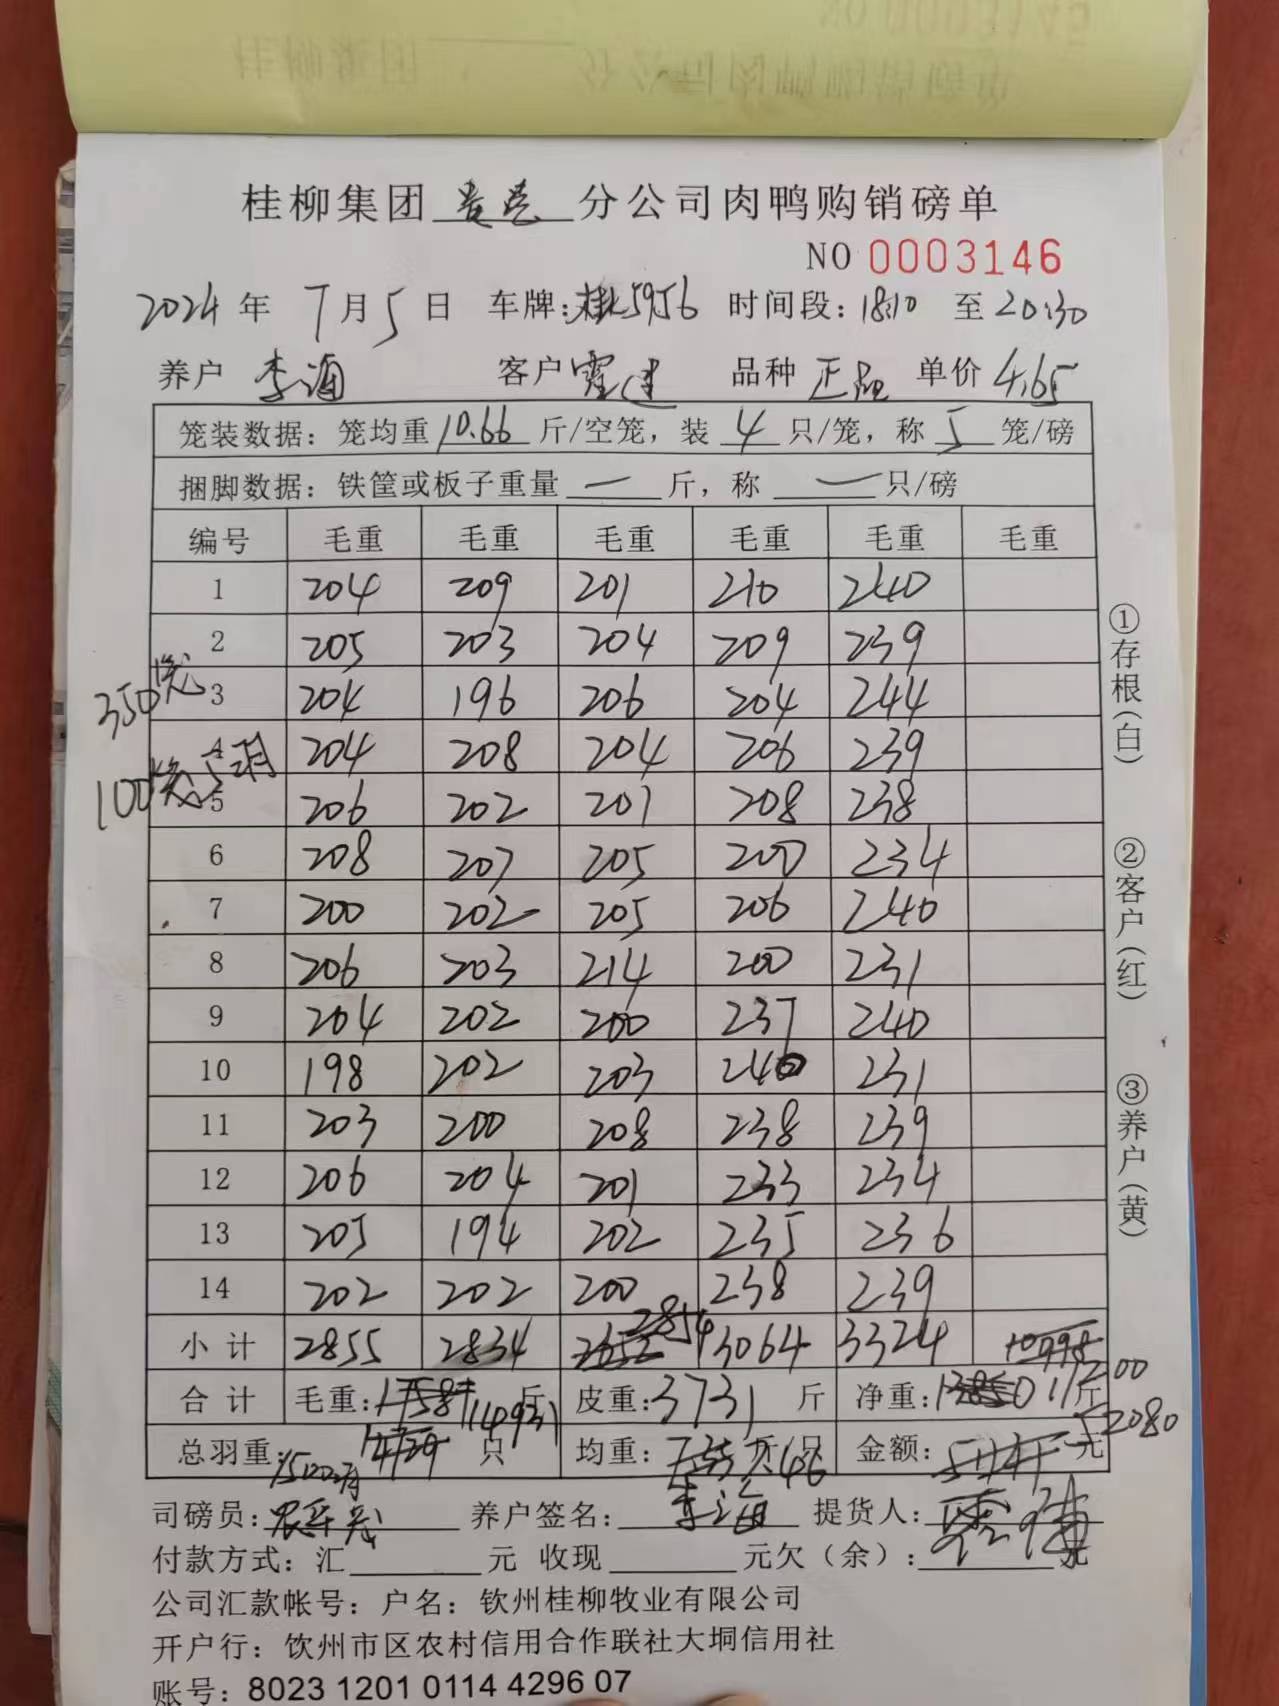 桂柳集团 分公司肉鸭购销磅单
NO 0003146
2024年 7月5日 车牌:桂5956 时间段:18:10 至20:30
养户 李海 客户 霍建 品种 正品 单价 4.65
笼装数据:笼均重10.66斤/空笼,装4只/笼,称5笼/磅
捆脚数据:铁筐或板子重量 — 斤,称 — 只/磅
编号 毛重 毛重 毛重 毛重 毛重 毛重
1 204 209 201 210 240
2 205 203 204 209 239
350笼
3 204 196 206 204 244
4 204 208 204 206 239
100笼5只
5 206 202 201 208 238
6 208 207 205 200 234
7 200 202 205 206 240
8 206 203 214 200 231
9 204 202 200 237 240
10 198 202 203 240 231
11 203 200 208 238 239
12 206 204 201 233 234
13 205 194 202 235 236
14 202 202 200 238 239
小计 2855 2834 2854 3064 3324
合计 毛重:14931斤 皮重:3731斤 净重:11200斤
总羽重:1500只 均重:7.46斤/只 金额:52080元
司磅员: 养户签名:李海 提货人:
付款方式:汇 元 收现 元欠(余): 元
公司汇款帐号:户名:钦州桂柳牧业有限公司
开户行:钦州市区农村信用合作联社大垌信用社
账号:8023 1201 0114 4296 07
①存根(白)
②客户(红)
③养户(黄)